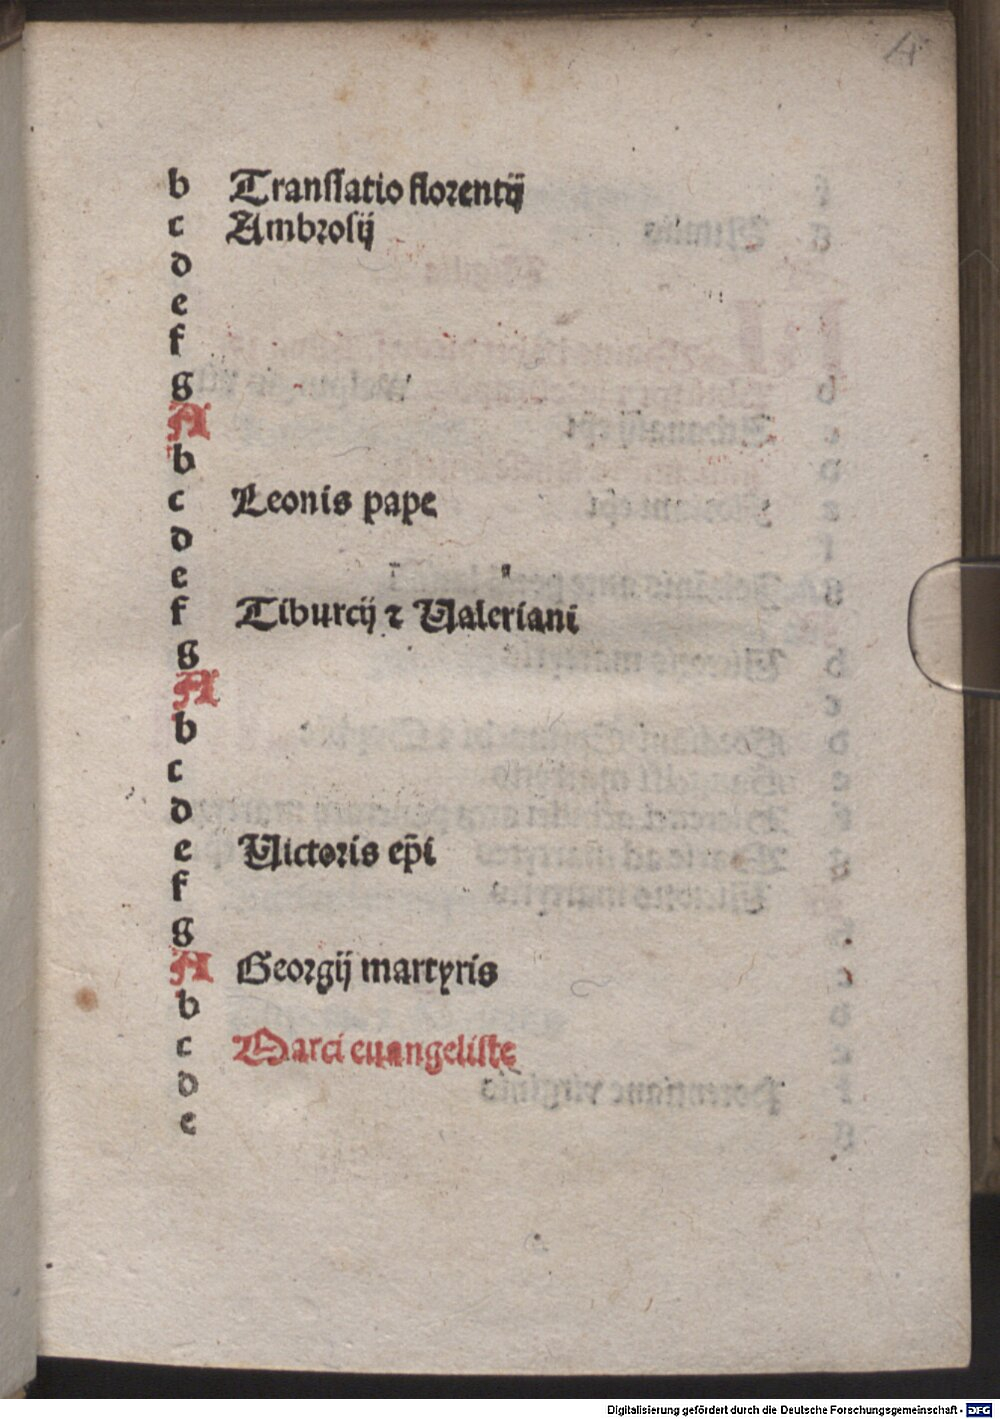 4
b Tranſlatio florentij
c Ambroſij
d
e
f
g
A
b
c Leonis pape
d
e
f Tiburcij ⁊ Valeriani
g
A
b
c
d
e Victoris ep̄i
f
g
A Georgij martyris
b
c Marci euangeliſte
d
e
Digitalisierung gefördert durch die Deutsche Forschungsgemeinschaft - DFG